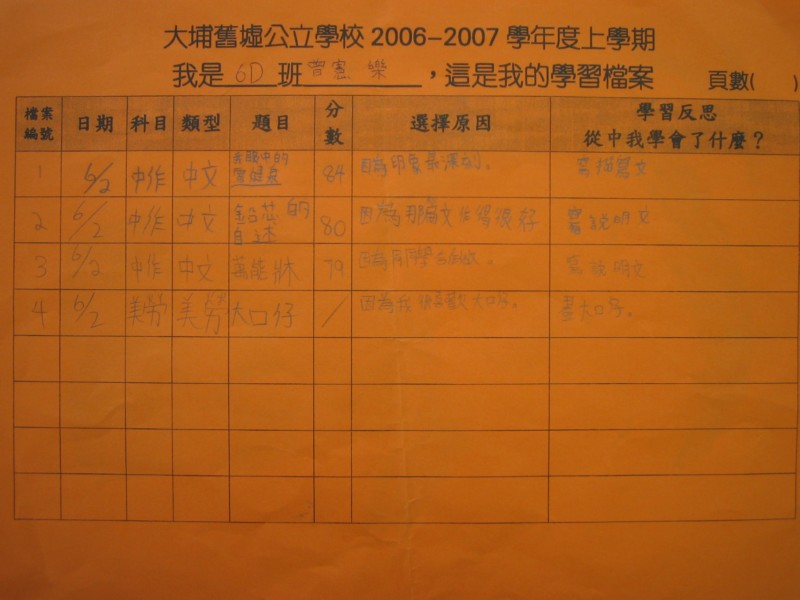 大埔舊墟公立學校 2006-2007 學年度上學期
我是 6D 班 曾憲樂 ，這是我的學習檔案 頁數( )
檔案編號 日期 科目 類型 題目 分數 選擇原因 學習反思 從中我學會了什麼？
1 6/2 中作 中文 我眼中的 84 因為印象最深刻。 寫描寫文
2 6/2 中作 中文 鉛芯的自述 80 因為那篇文作得很好 寫說明文
3 6/2 中作 中文 萬能牀 79 因為同學 寫說明文
4 6/2 美勞 美勞 大口仔 / 因為我很喜歡大口仔。 畫大口仔。